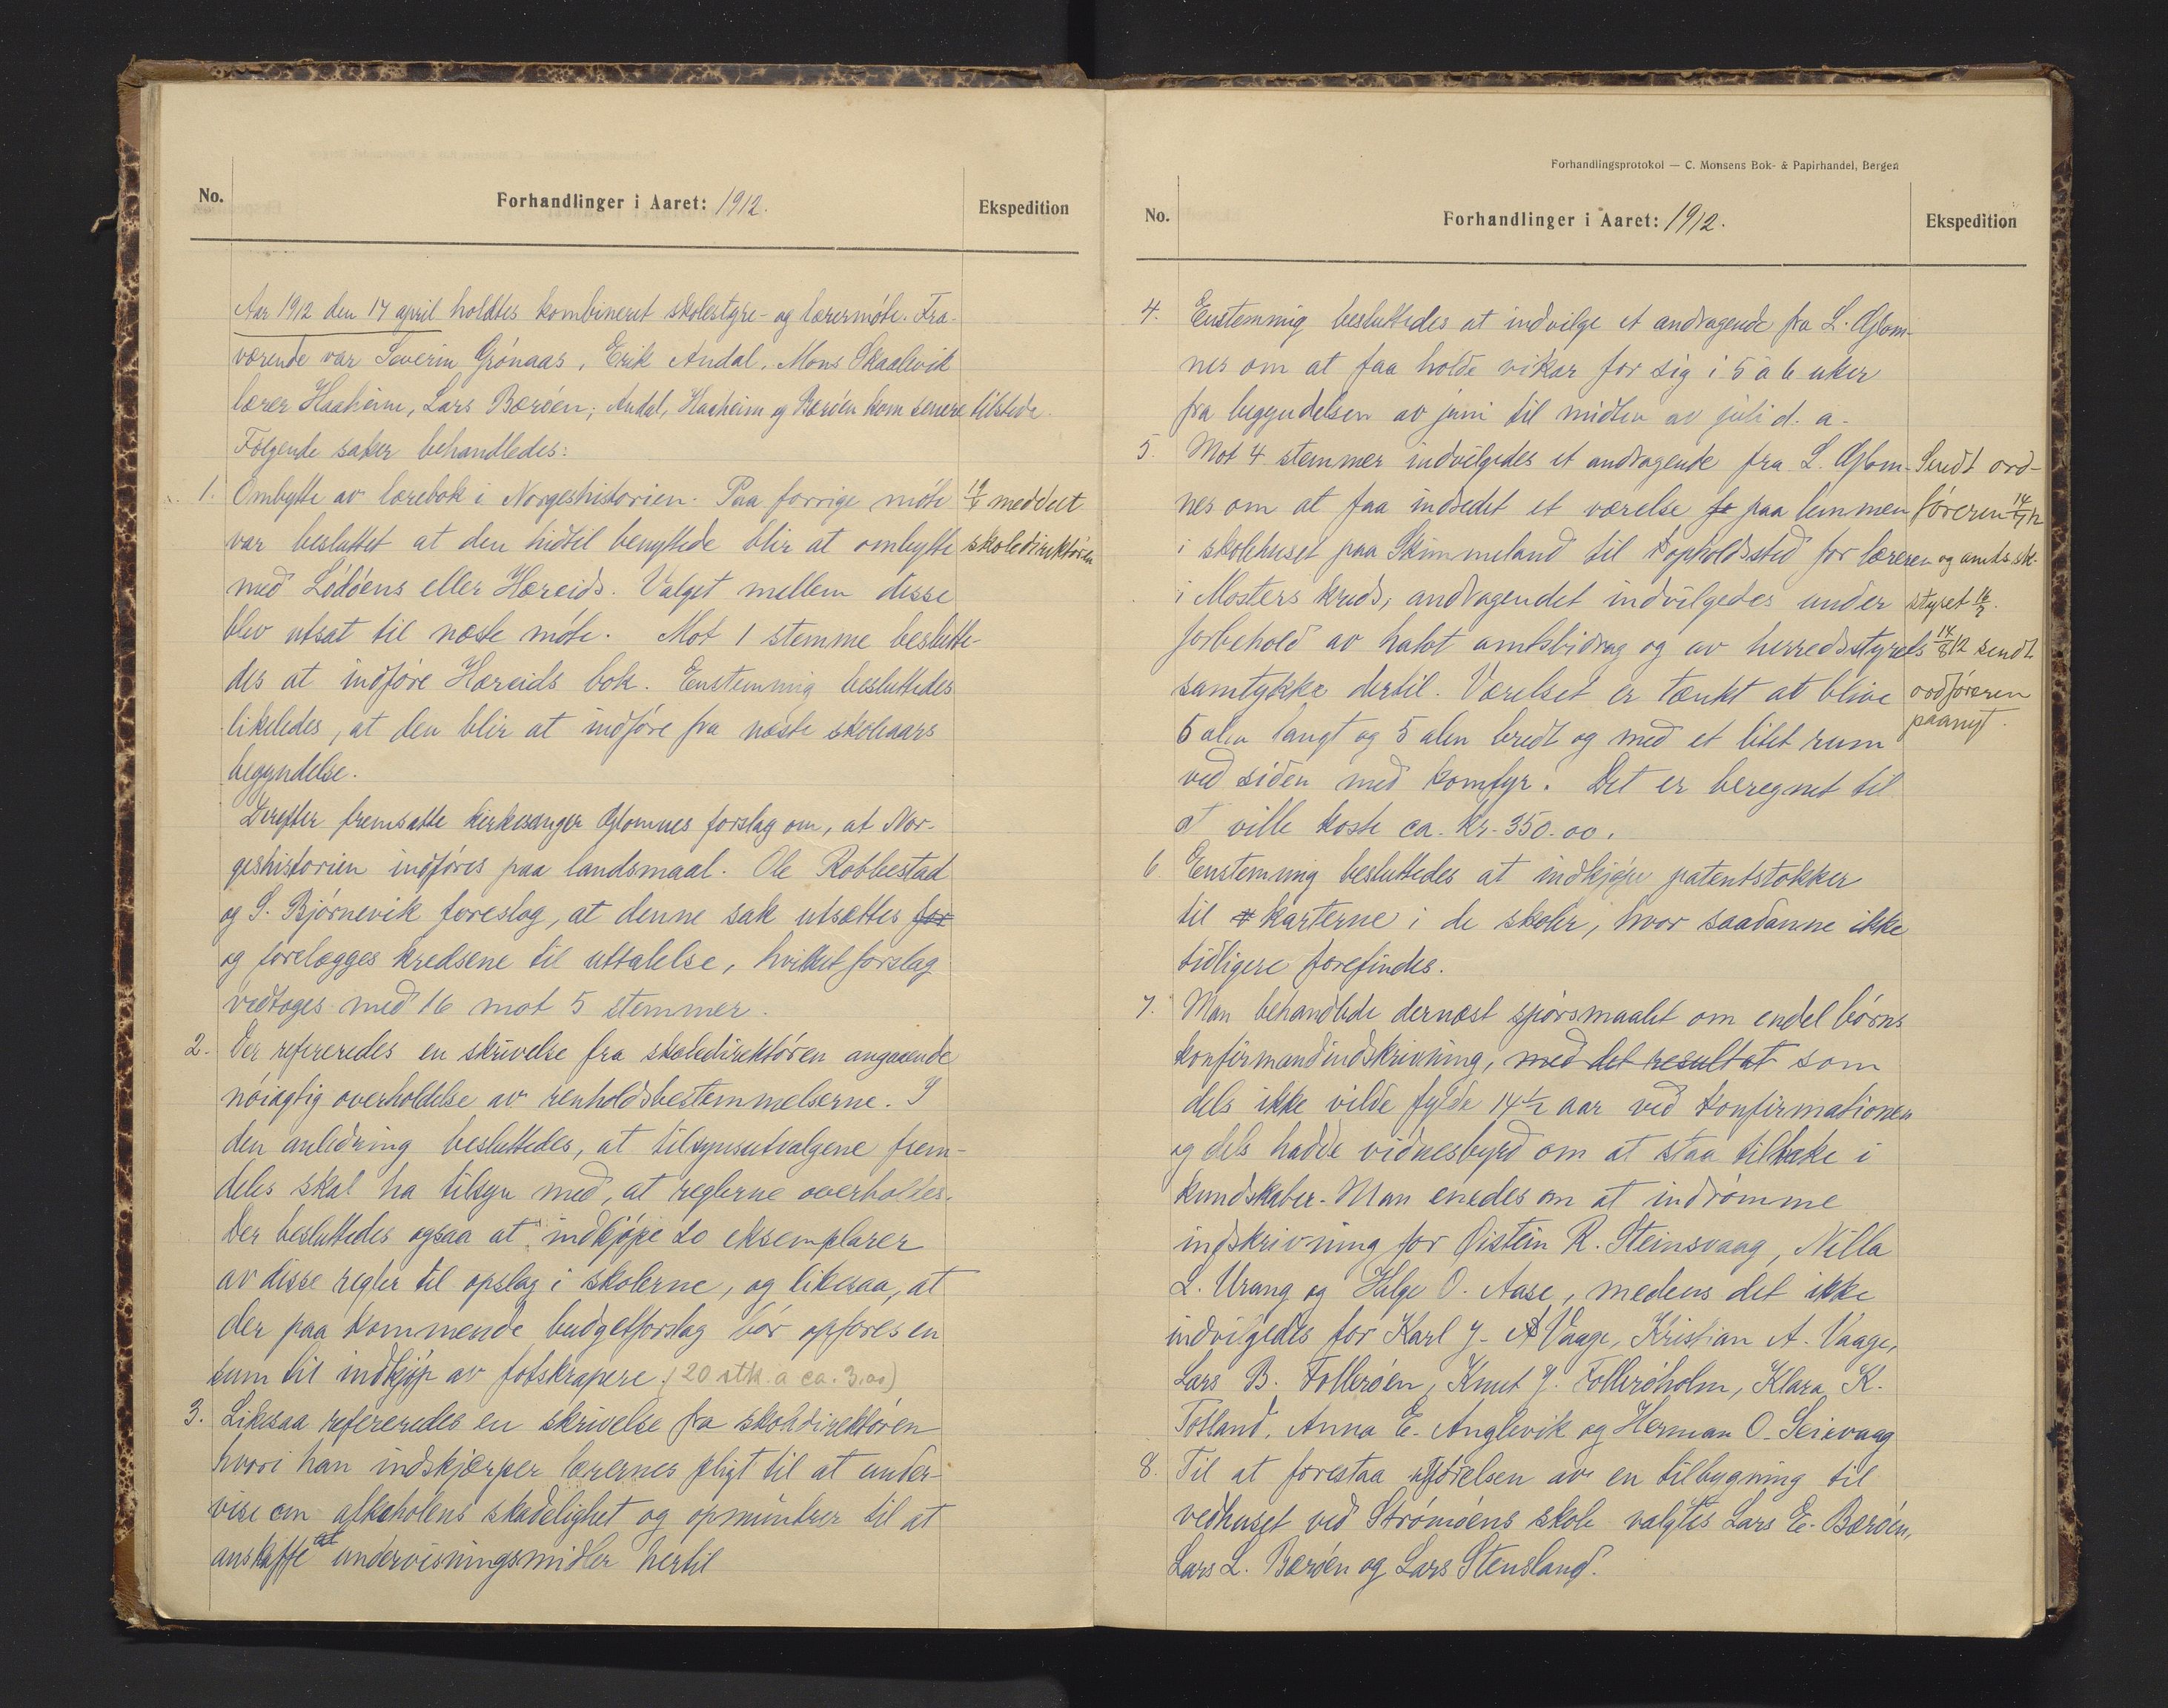 No.
Forhandlinger i Aaret: 1912.
Ekspedition
Aar 1912 den 17 april holdtes kombineret skolestyre- og lærermøte. Fra-
værende var Severin Grönaas, Erik Andal, Mons Skaalevik
lærer Haaheim, Lars Bærøen; Andal, Haaheim og Bærøen kom senere tilstede.
Følgende saker behandledes:
1. Ombytte av lærebok i Norgeshistorien. Paa forrige møte
var besluttet at den hidtil benyttede blir at ombytte
med Lødøens eller Hæreids. Valget mellem disse
blev utsat til næste møte. Mot 1 stemme beslutte-
des at indføre Hæreids bok. Enstemmig besluttedes
likeledes, at den blir at indføre fra næste skoleaars
begyndelse.
meddelt
skoledirektøren
Derefter fremsatte kirkesanger Glomnes forslag om, at Nor-
geshistorien indføres paa landsmaal. Ole Robbestad
og S. Bjørnevik foreslog, at denne sak utsættes for
og forelægges kredsene til uttalelse, hvilket forslag
vedtoges med 16 mot 5 stemmer.
2. Der refereredes en skrivelse fra skoledirektøren angaaende
nøiagtig overholdelse av renholdsbestemmelserne. I
den anledning besluttedes, at tilsynsutvalgene frem-
deles skal ha tilsyn med, at reglerne overholdes.
Der besluttedes ogsaa at indkjøpe 20 eksemplarer
av disse regler til opslag i skolerne, og likesaa, at
der paa kommende budgetforslag bør opføres en
sum til indkjøp av fotskrapere. (20 stk. a ca. 3.00)
3. Likesaa refereredes en skrivelse fra skoledirektøren
hvori han indskjærper lærernes pligt til at under-
vise om alkoholens skadelighet og opmuntrer til at
anskaffe at undervisningsmidler hertil
Forhandlingsprotokol — C. Monsens Bok- & Papirhandel, Bergen
No.
Forhandlinger i Aaret: 1912.
Ekspedition
4. Enstemmig besluttedes at indvilge et andragende fra L. Glom-
nes om at faa holde vikar for sig i 5 à 6 uker
fra begyndelsen av juni til midten av juli d. a.
5. Mot 4 stemmer indvilgedes et andragende fra L. Glom-
nes om at faa indredet et værelse fo paa lemmen
i skolehuset paa Skimmeland til opholdssted for læreren
i Mosters kreds, andragendet indvilgedes under
forbehold av halvt amtsbidrag og av herredsstyrets
samtykke dertil. Værelset er tænkt at blive
5 alen langt og 5 alen bredt og med et litet rum
ved siden med komfyr. Det er beregnet til
at ville koste ca. kr. 350.00.
Sendt ord-
føreren
og amtssk.
styret
14/8 12 sendt
ordføreren
paanyt.
6 Enstemmig besluttedes at indkjøpe patentstokker
til karterne i de skoler, hvor saadanne ikke
tidligere forefindes.
7. Man behandlede dernæst spørsmaalet om endel børns
konfirmandindskrivning, med det resultat som
dels ikke vilde fylde 14½ aar ved konfirmationen
og dels hadde vidnesbyrd om at staa tilbake i
kundskaber. Man enedes om at indrømme
indskrivning for Øistein R. Steinsvaag, Nilla
L. Urang og Helge O. Aase, medens det ikke
indvilgedes for Karl J. Vaage, Kristian A. Vaage,
Lars B. Follerøen, Knut J. Follerøholm, Klara K.
Totland, Anna E. Anglevik og Herman O. Seievaag
8. Til at forestaa opførelsen av en tilbygning til
vedhuset ved Strømøens skole valgtes Lars E. Bærøen,
Lars L. Bærøen og Lars Stensland.